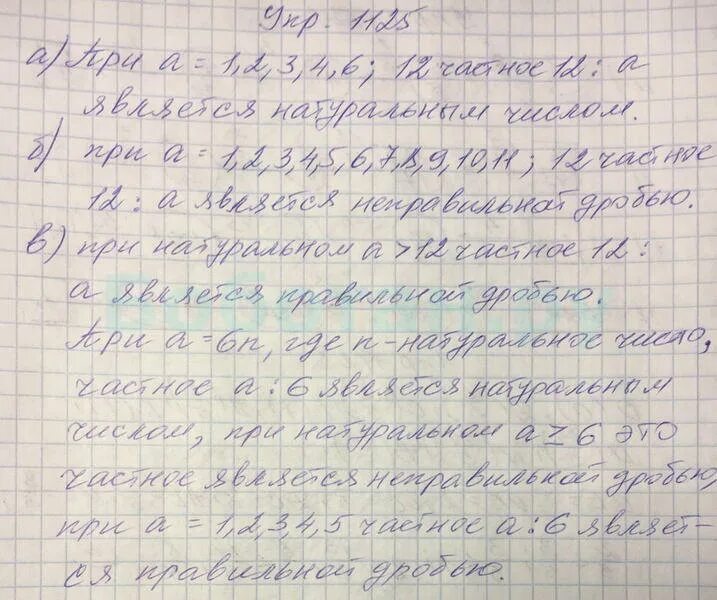 Упр. 1125
а) При а = 1,2,3,4,6; 12 частное 12 : а
является натуральным числом.
б) при а = 1,2,3,4,5,6,7,8,9,10,11; 12 частное
12 : а является неправильной дробью.
в) при натуральном а > 12 частное 12 :
а является правильной дробью.
При а = 6n, где n - натуральное число,
частное а : 6 является натуральным
числом, при натуральном а ≥ 6 это
частное является неправильной дробью,
при а = 1,2,3,4,5 частное а : 6 являет-
ся правильной дробью.